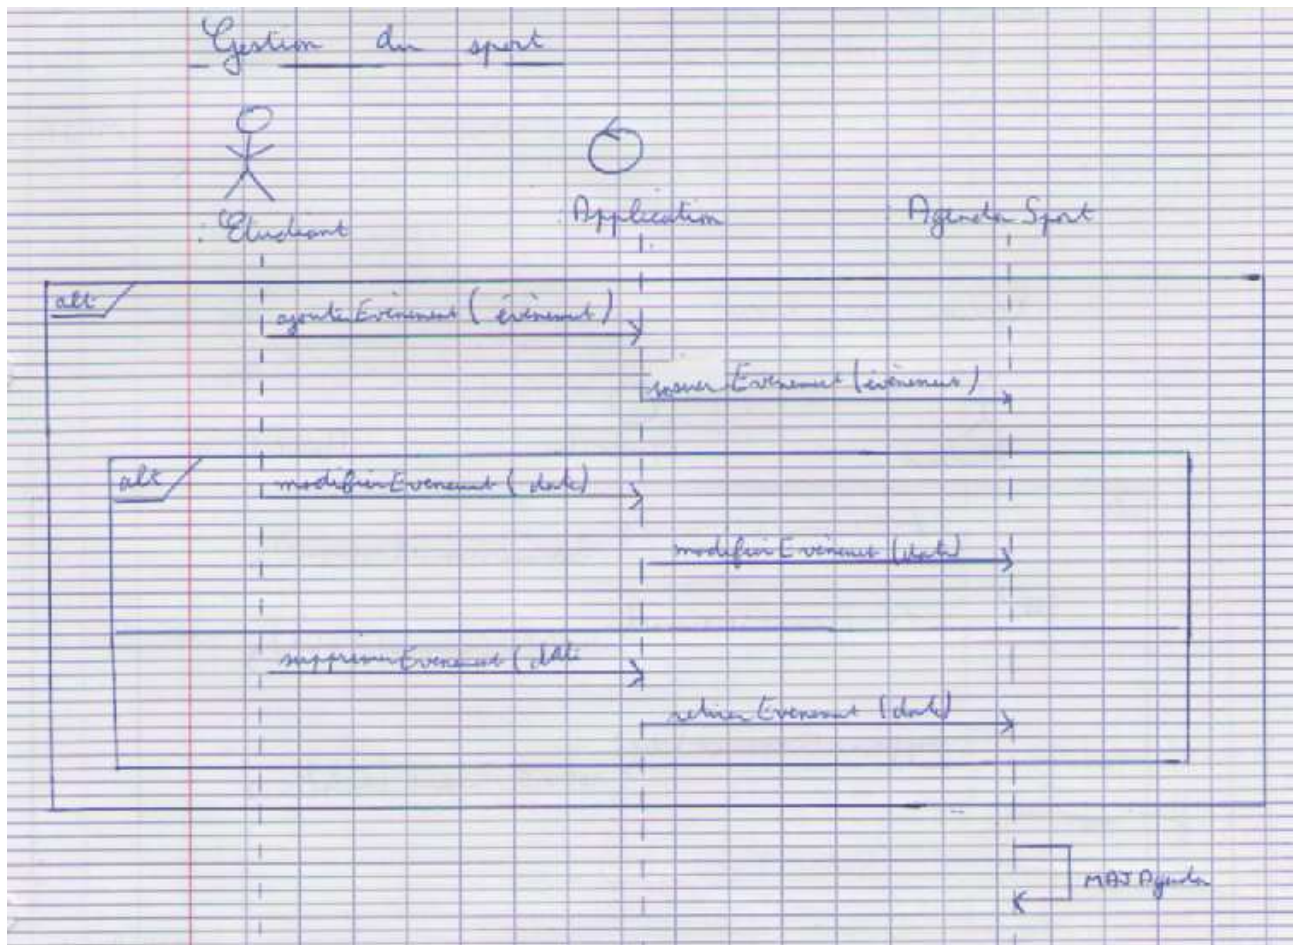 Gestion du sport
: Etudiant
: Application
: Agenda Sport
alt
ajouterEvènement ( évènement )
Evenement (évènement)
alt
modifierEvenement ( date)
modifierEvènement (date)
supprimerEvenement ( dAte
retirerEvenement (date)
MAJ Agenda